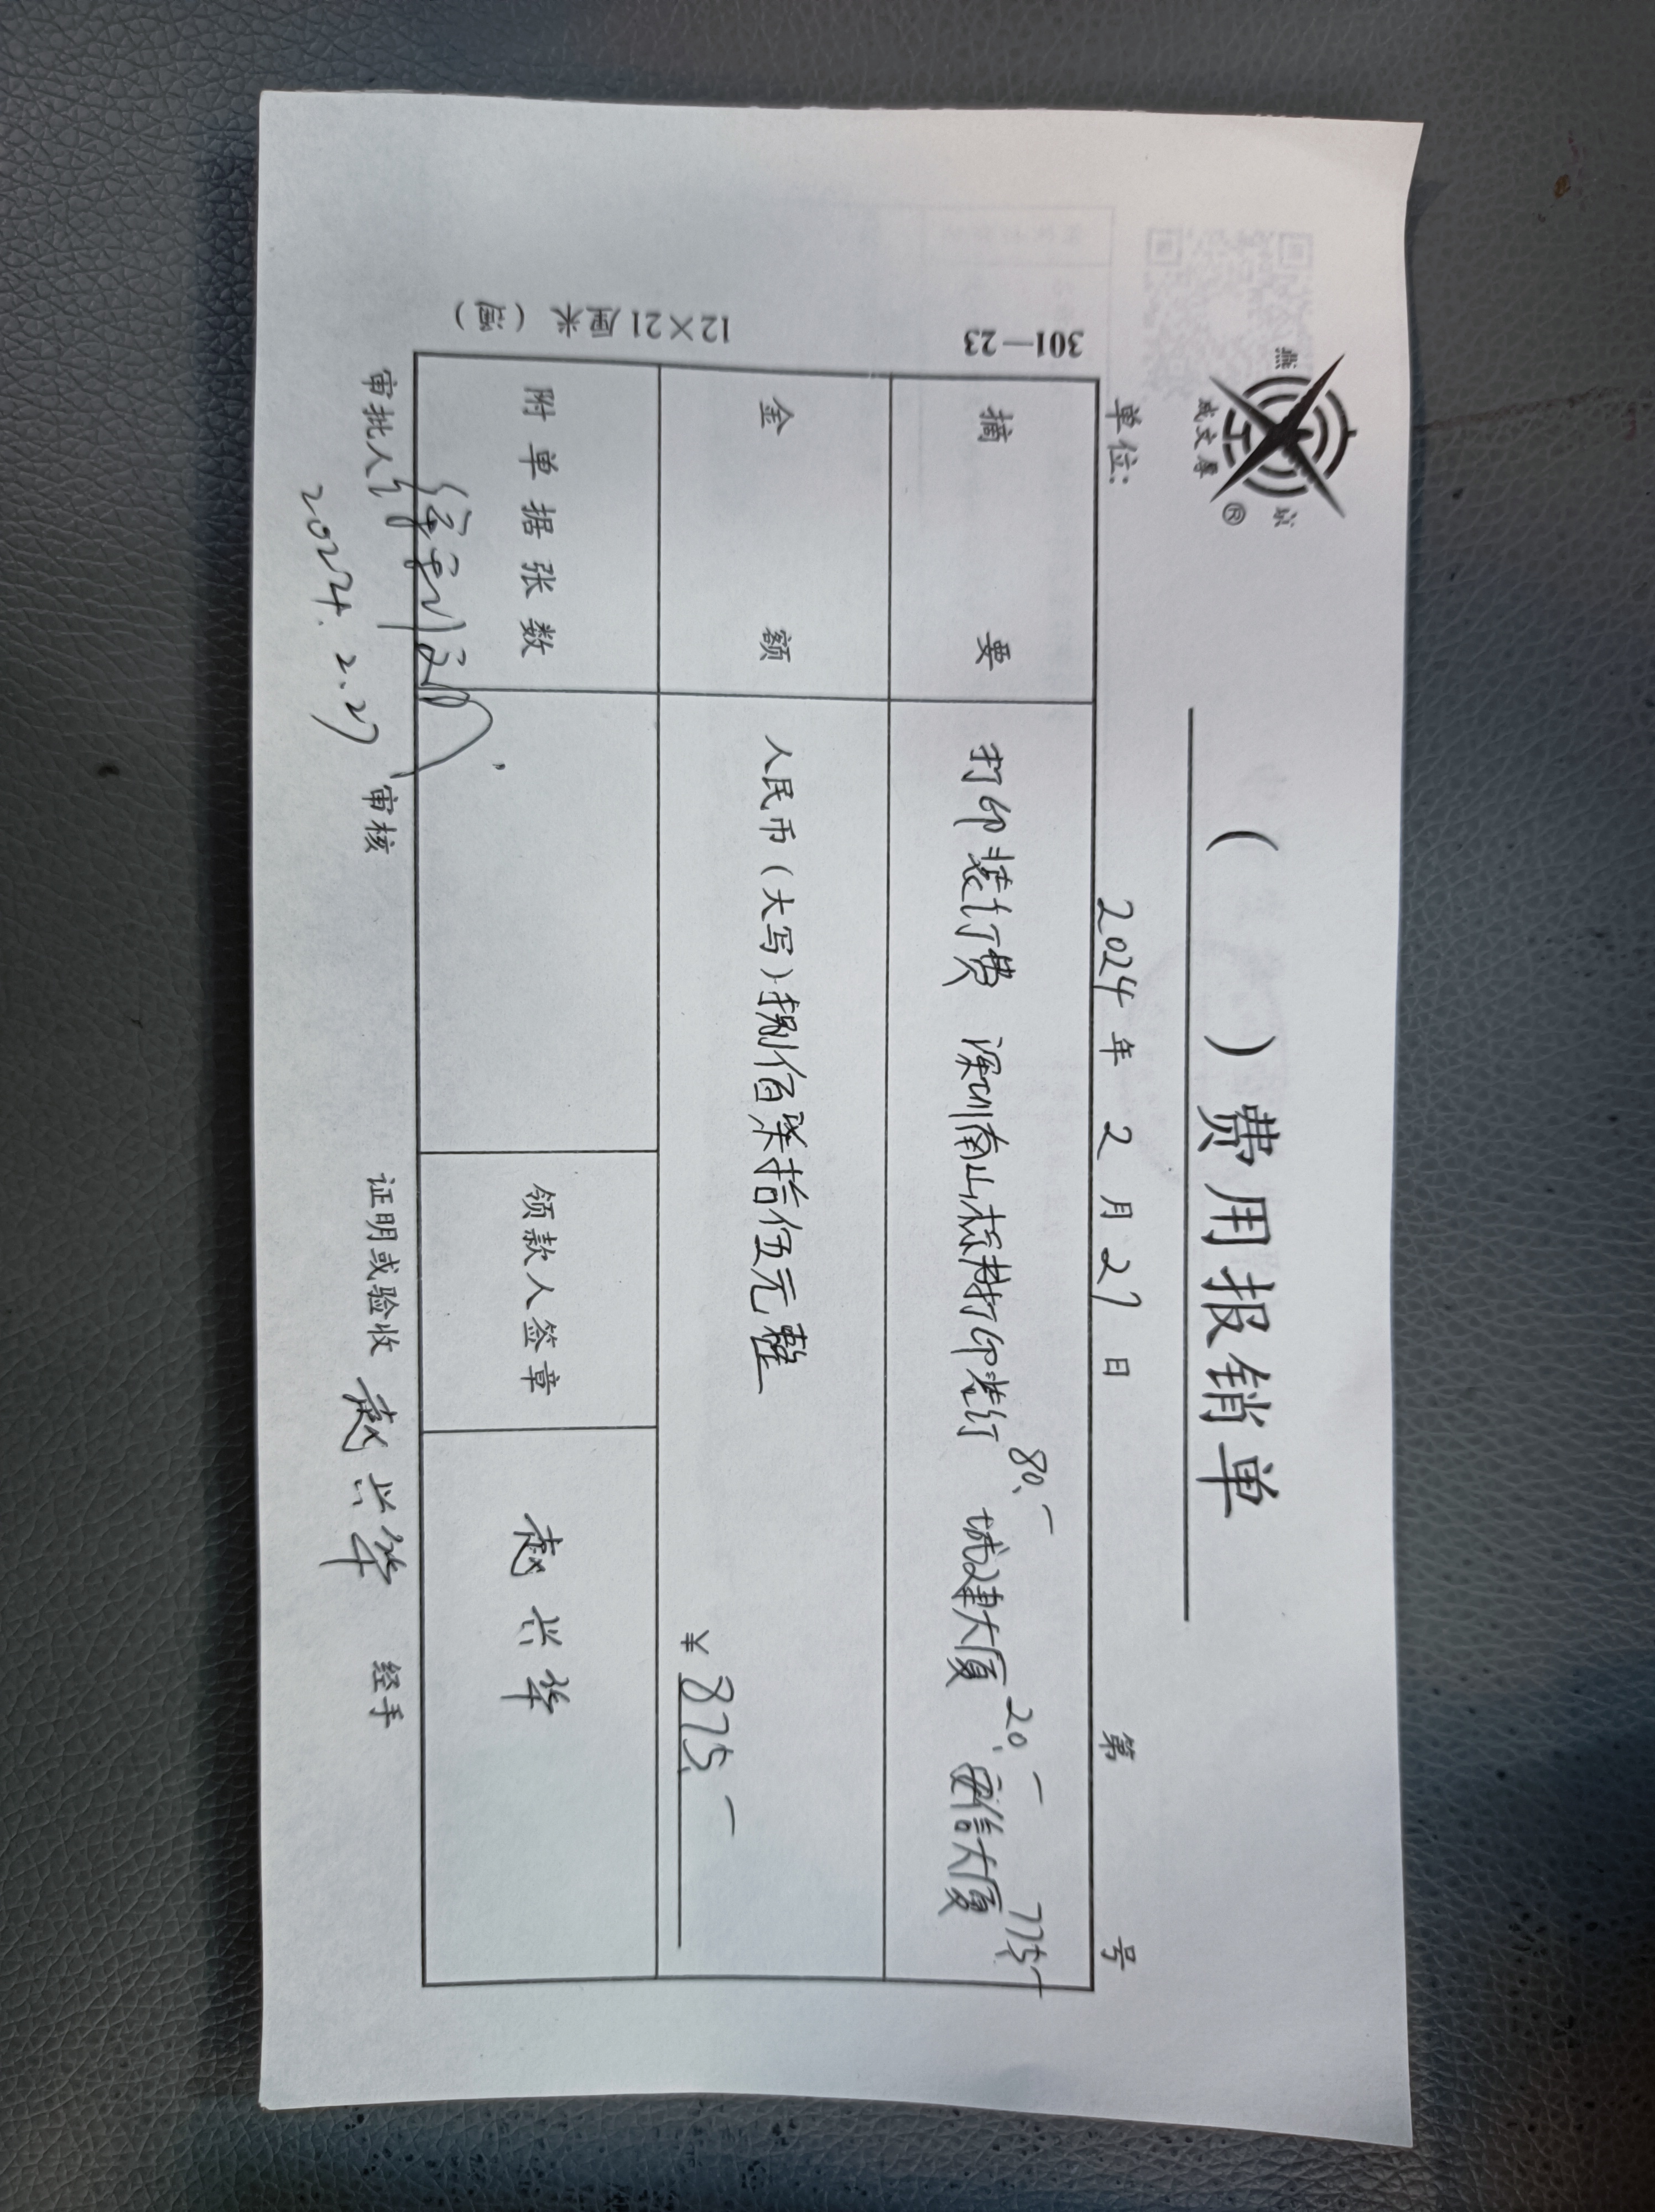 燕京
成文厚
®
（　　）费用报销单
单位： 2024 年 2 月 27 日 第 号
301—23
12×21厘米（闻）
摘要
80.— 20.— 775—
打印装订费 深圳南山标书打印装订 城建大厦 安信大厦
金额
人民币（大写）捌佰柒拾伍元整
¥ 875.—
附单据张数
领款人签章 赵兴华
审批人 审核 证明或验收 赵兴华 经手
2024.2.27